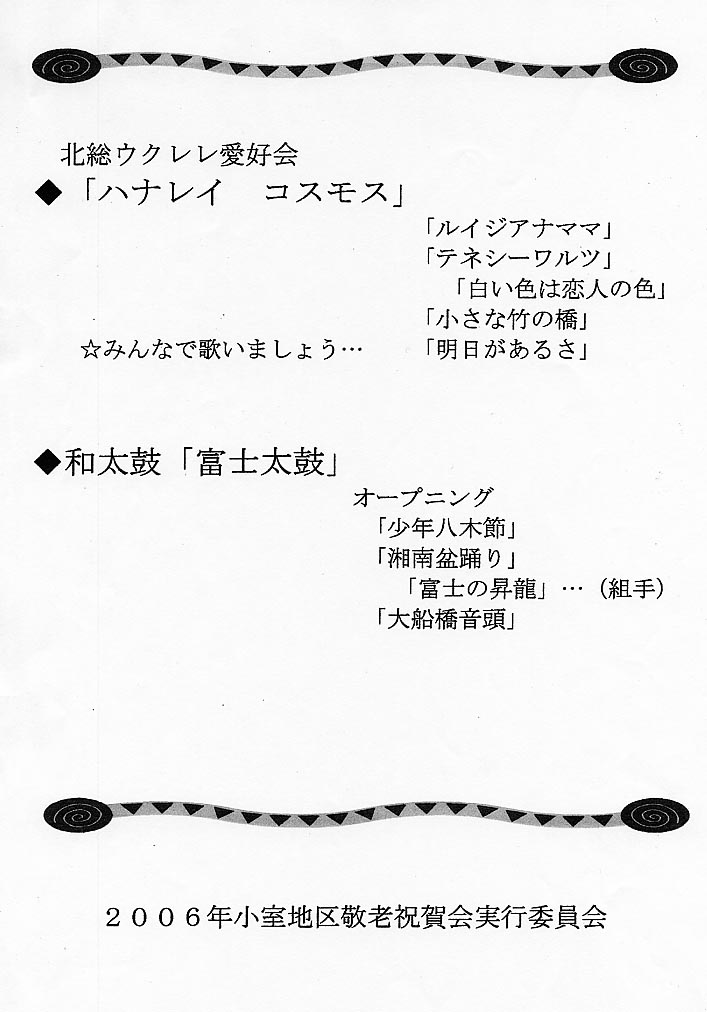 北総ウクレレ愛好会
◆「ハナレイ　コスモス」
「ルイジアナママ」
「テネシーワルツ」
「白い色は恋人の色」
「小さな竹の橋」
☆みんなで歌いましょう…　「明日があるさ」
◆和太鼓「富士太鼓」
オープニング
「少年八木節」
「湘南盆踊り」
「富士の昇龍」…（組手）
「大船橋音頭」
２００６年小室地区敬老祝賀会実行委員会